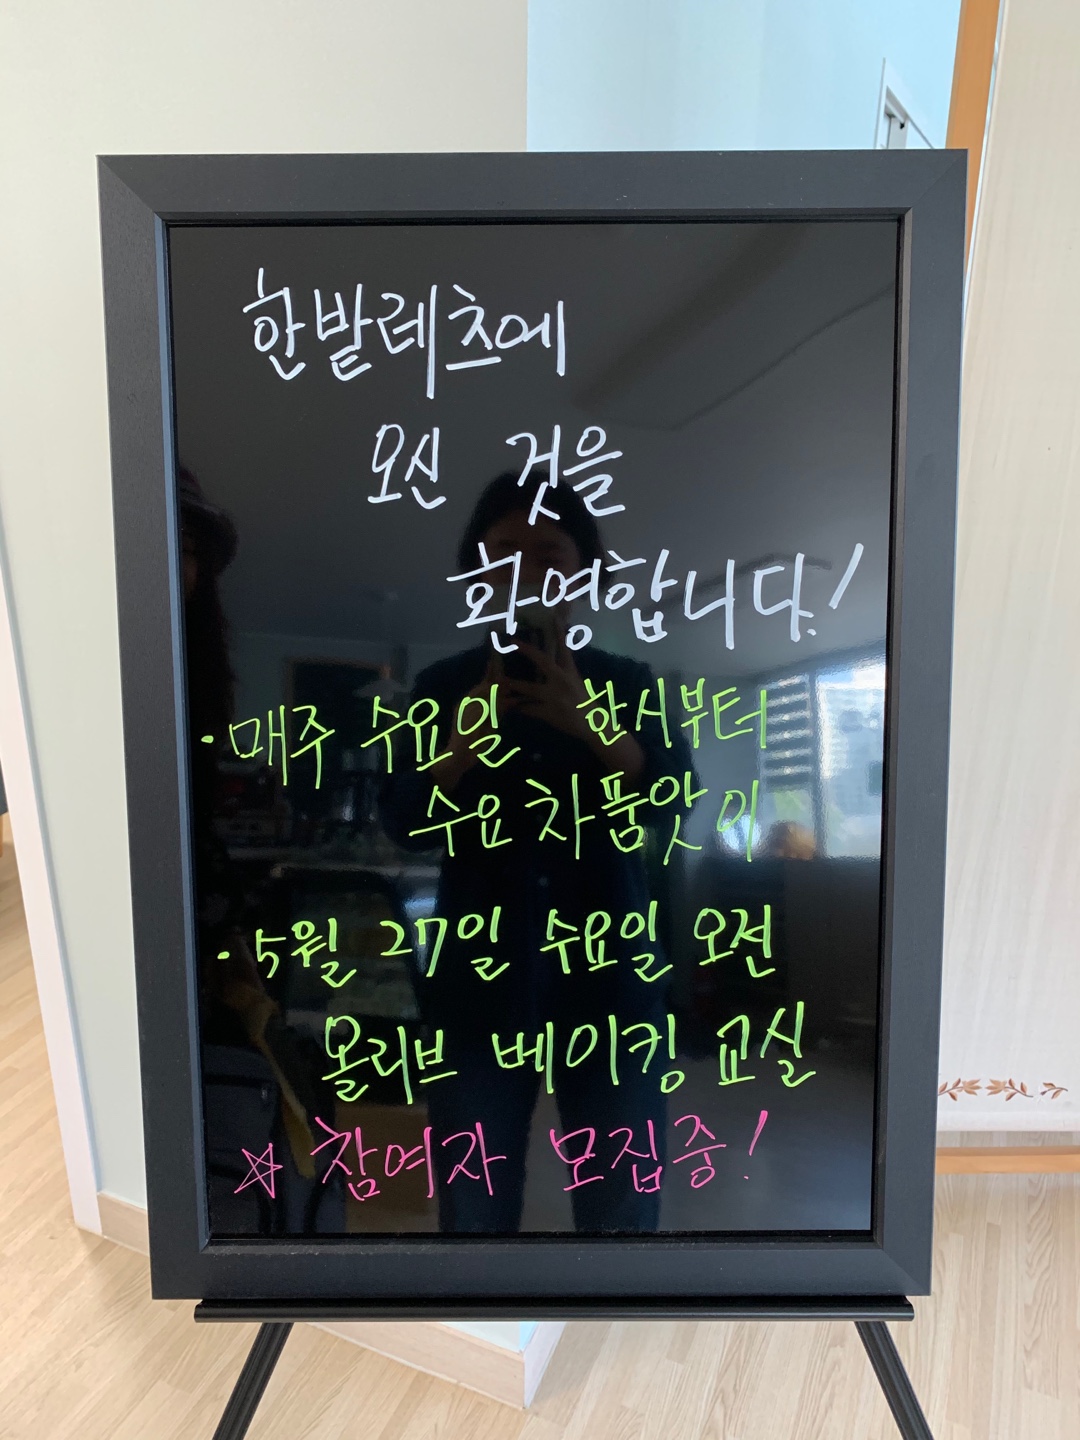 한밭레츠에
오신 것을
환영합니다!
· 매주 수요일 한시부터
수요 차 품앗이
· 5월 27일 수요일 오전
올리브 베이킹 교실
☆ 참여자 모집중!